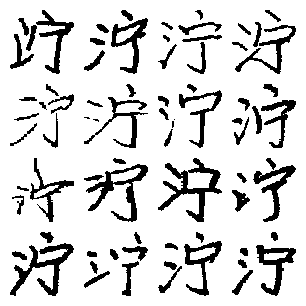 泞泞泞泞
泞泞泞泞
泞泞泞泞
泞泞泞泞